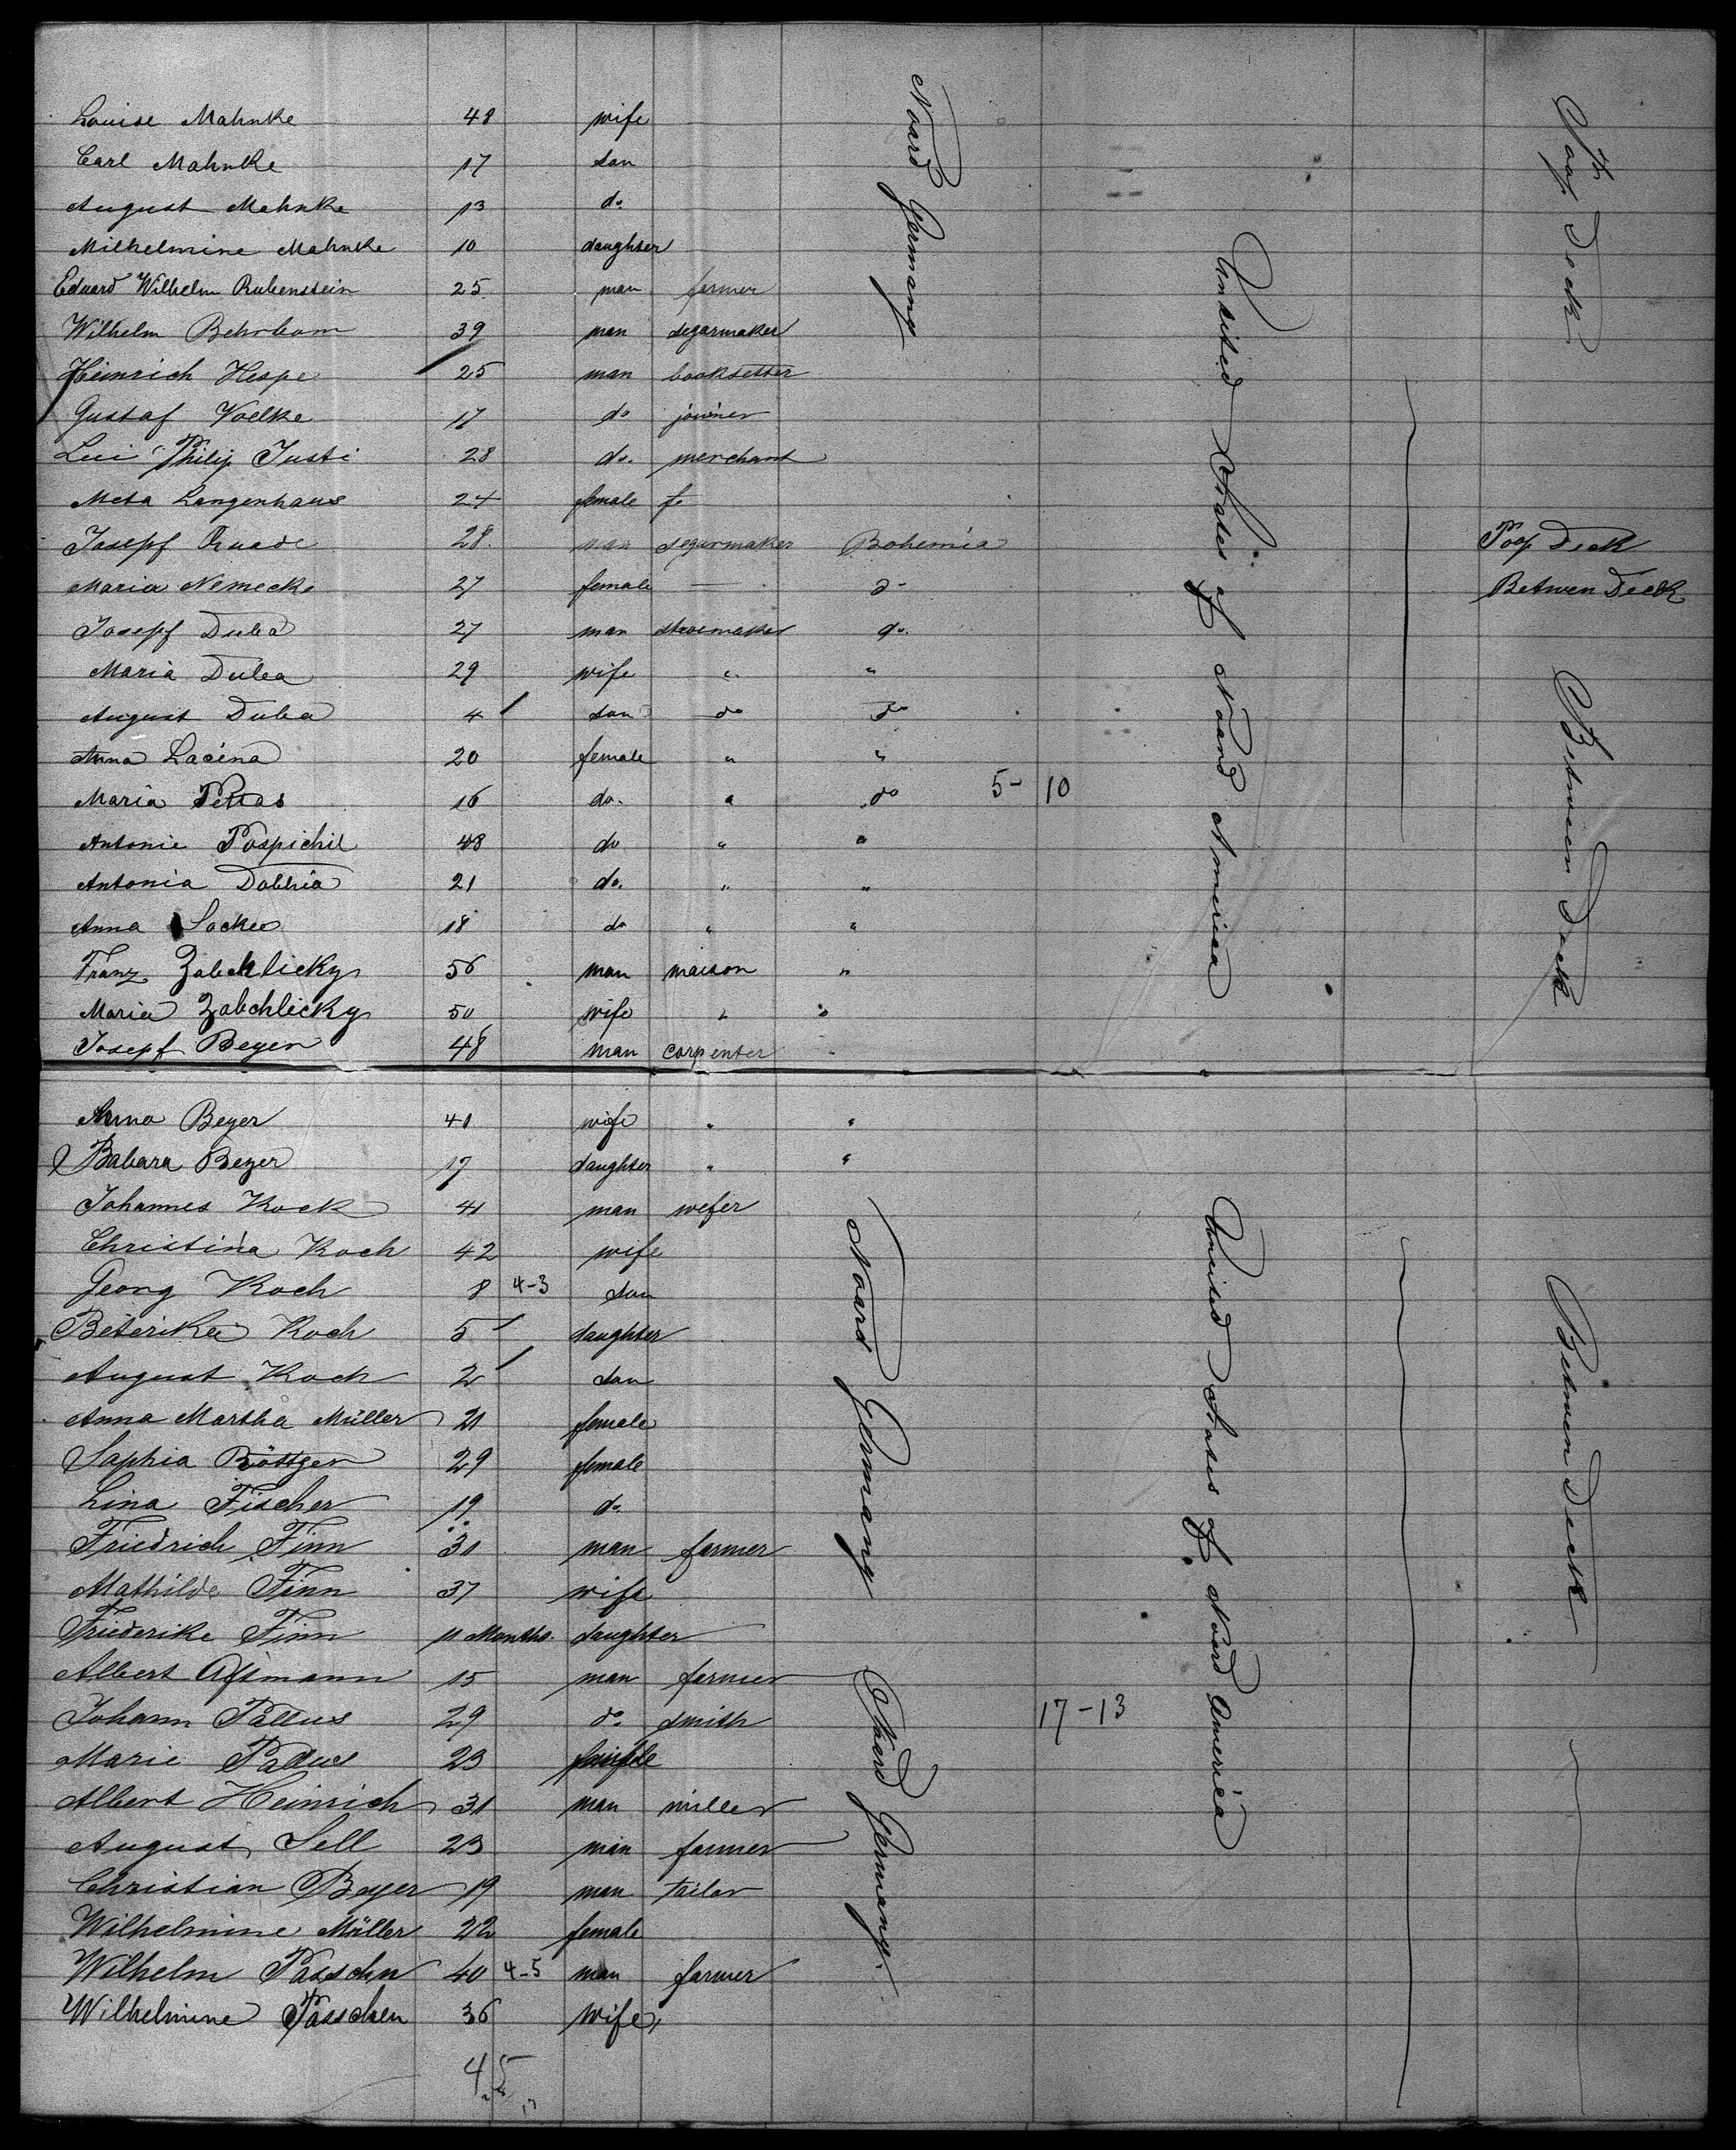 Louise Mahnke 48 wife
Carl Mahnke 17 son
August Mahnke 13 do.
Milhelmine Mahnke 10 daughter
Eduard Wilhelm Rubenstein 25 man farmer
Wilhelm Behrbom 39 man segarmaker
Heinrich Hespe 25 man booksetter
Gustaf Voelke 17 do joiner
Lui Philip Justi 28 do. merchant
Meta Langenhaus 24 female
Noard Germany
Poop Deck
Josepf 28. man segarmaker Bohemia Poop Deck
Maria Nemecke 27 female — do Betwen Deck
Josepf Duba 27 man shoemaker do.
Maria Duba 29 wife " "
August Duba 4 son do do
Anna Lacina 20 female " "
Maria Pettas 16 do. " do 5- 10
Antonie Pospichil 48 do " "
Antonia 21 do. " "
Anna 18 do " "
Franz Zabchlicky 56 man maison "
Maria Zabchlicky 50 wife " "
Josepf Beyer 48 man carpenter "
Unitied States of Noard America
Between Deck
Anna Beyer 41 wife " "
Babara Beyer 17 daughter " "
Johannes Kock 41 man wefer
Christina Koch 42 wife
Georg Koch 8 4-3 son
Koch 5 daughter
August Koch 2 son
Anna Martha Müller 21 female
Sophia Röttger 29 female
Lina Fischer 19 do.
Friedrich Finn 31 man farmer
Mathilde Finn 37 wife
Friederike Finn 11 Months. daughter
Noard Germany
Albert Aßmann 15 man farmer
Johann Pallus 29 do. smith 17-13
Marie Pallus 23
Albert Heinrich 31 man miller
August Sell 23 man farmer
Christian Beyer 19 man tailor
Wilhelmine Müller 22 female
Wilhelm Passchn 40 4-5 man farmer
Wilhelmine Passchen 36 wife
Noard Germany.
Unitied States of Noard America
Betwen Deck
45